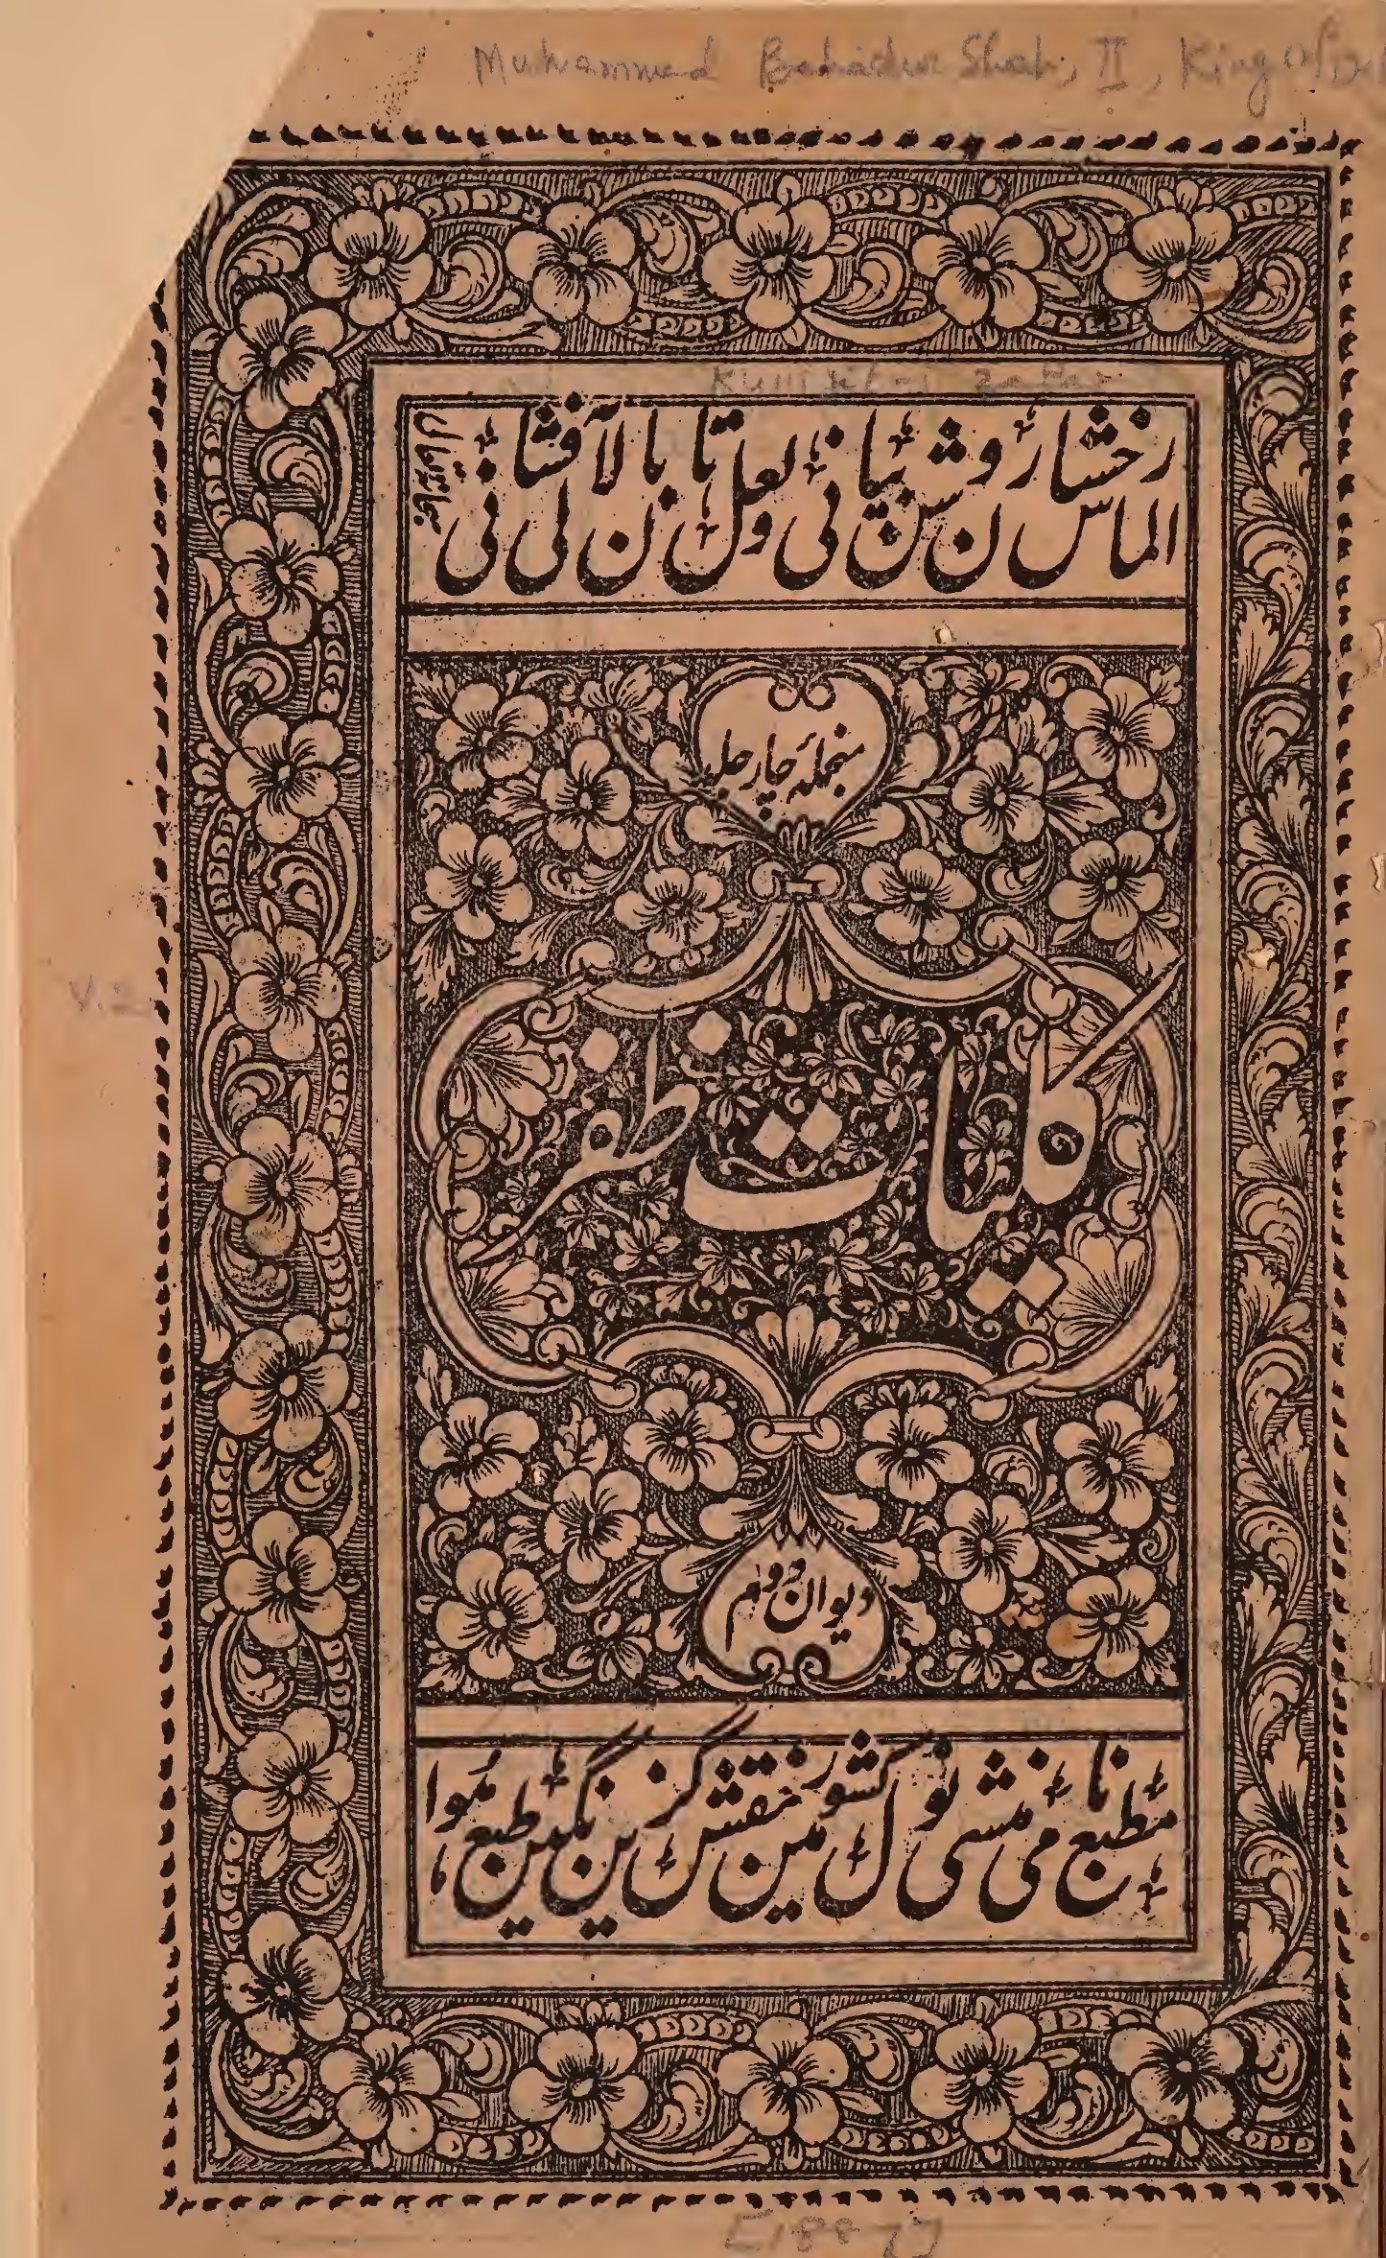 Muhammad Bahadur Shah, II, King of Del
Kulliyat-i Zafar
الماس رخشان روشن بیانی و لعل تابان لآلی فشانی
منجملۂ چار جلد
V.2
کلیات ظفر
دیوان دوم
مطبع نامی منشی نول کشور مین نقش گزین نگین طبع ہوا
[1887]